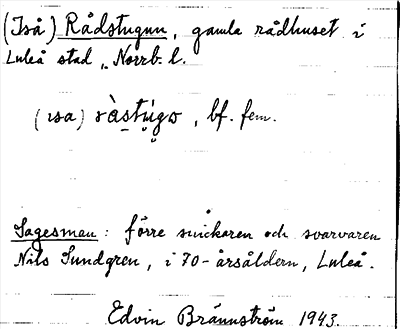 (Iså) Rådstugun, gamla rådhuset i
Luleå stad, Norrb. l.
(ısa) ràstúgω, bf. fem.
Sagesman: förre snickaren och svarvaren
Nils Sundgren, i 70-årsåldern, Luleå.
Edvin Brännström 1943.